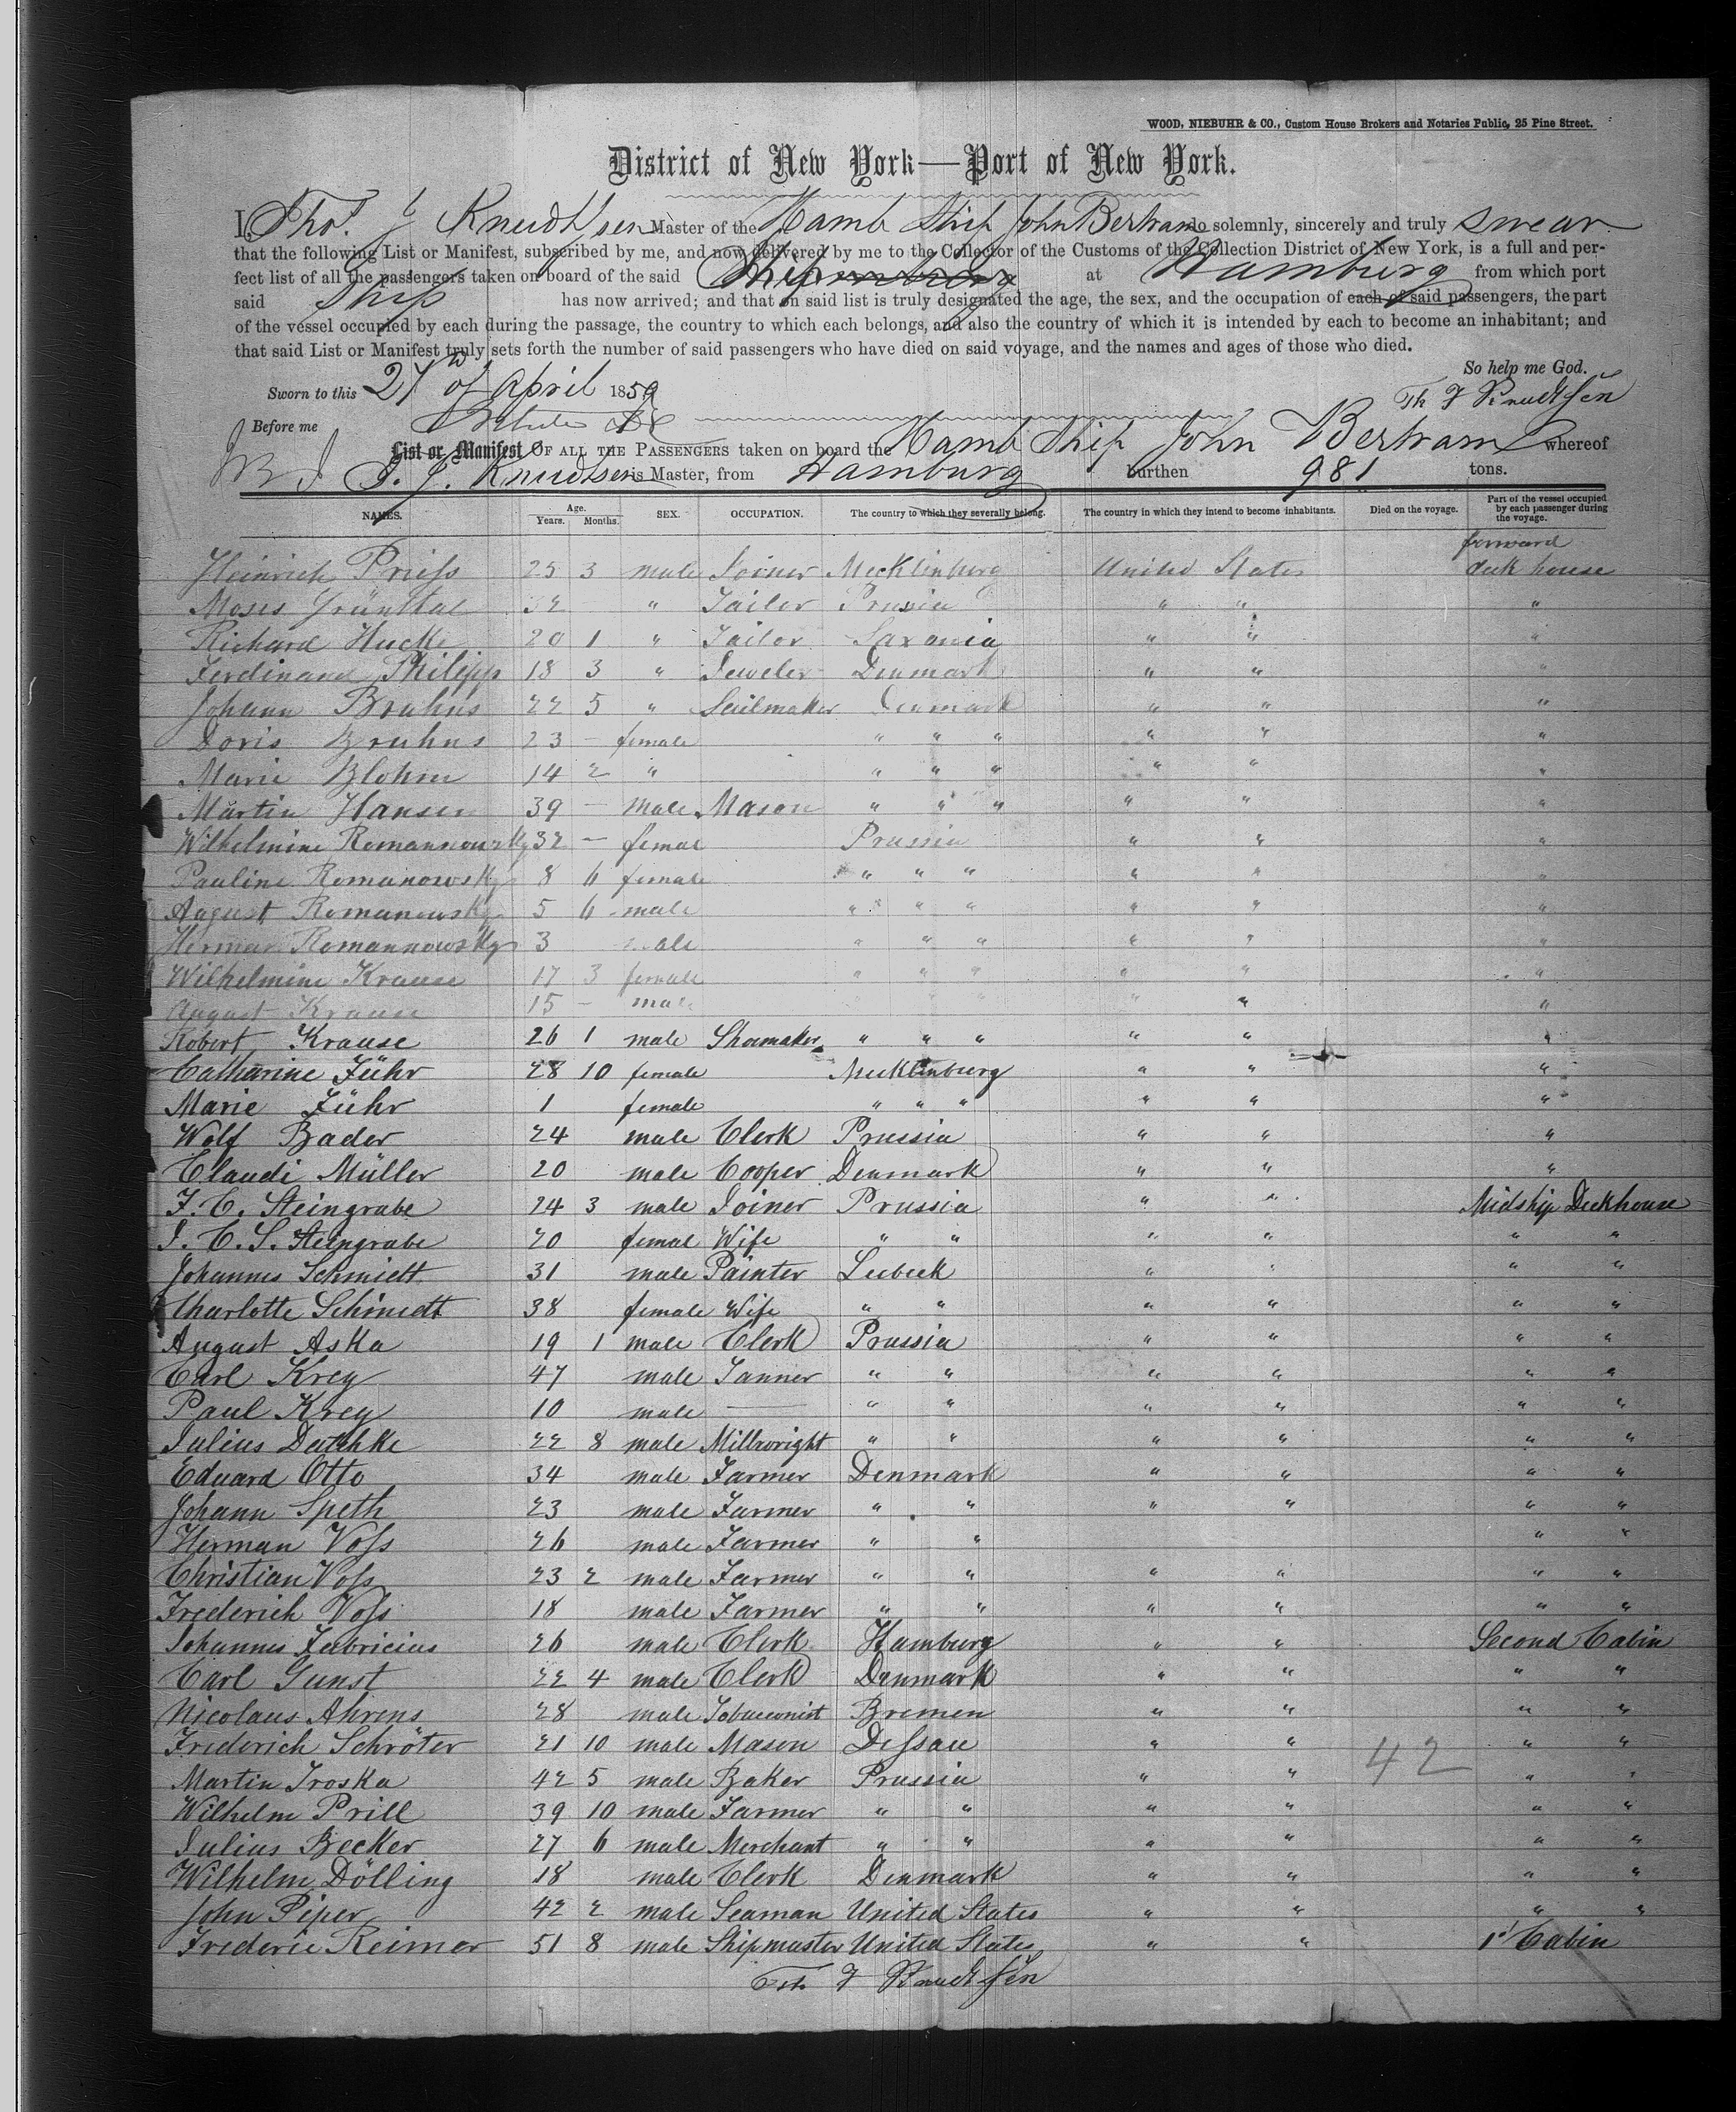 WOOD, NIEBUHR & CO., Custom House Brokers and Notaries Public, 25 Pine Street.
District of New York—Port of New York.
I, Thos. J Knudtsen Master of the Hamb Ship John Bertram do solemnly, sincerely and truly swear
that the following List or Manifest, subscribed by me, and now delivered by me to the Collector of the Customs of the Collection District of New York, is a full and per-
fect list of all the passengers taken on board of the said Ship at Hamburg from which port
said Ship has now arrived; and that on said list is truly designated the age, the sex, and the occupation of each of said passengers, the part
of the vessel occupied by each during the passage, the country to which each belongs, and also the country of which it is intended by each to become an inhabitant; and
that said List or Manifest truly sets forth the number of said passengers who have died on said voyage, and the names and ages of those who died.
So help me God.
Sworn to this 27th of April 1859
Th J Knudtsen
Before me
List or Manifest OF ALL THE PASSENGERS taken on board the Hamb Ship John Bertram whereof
J. J. Knudtsen is Master, from Hamburg burthen 981 tons.
NAMES. Age. Years. Months. SEX. OCCUPATION. The country to which they severally belong. The country in which they intend to become inhabitants. Died on the voyage. Part of the vessel occupied by each passenger during the voyage.
Heinrich Priess 25 3 male Joiner Mecklinburg United States forward deck house
Moses Grünthal 32 " Tailor Prussia " " "
Richard Hucke 20 1 " Tailor Saxonia " " "
Ferdinand Philipp 18 3 " Jeweler Denmark " " "
Johann Bruhns 22 5 " Sailmaker Denmark " " "
Doris Bruhns 23 — female " " " " " "
Marie Blohm 14 2 " " " " " " "
Martin Hansen 39 — male Mason " " " " " "
Wilhelmine Romannowsky 32 — femal Prussia " " "
Pauline Romanowsky 8 6 female " " " " " "
August Romanowsky 5 6 male " " " " " "
Herman Romannowsky 3 male " " " " " "
Wilhelmine Krause 17 3 female " " " " " "
August Krause 15 — male " " " " " "
Robert Krause 26 1 male Shoemaker " " " " " "
Catharine Führ 28 10 female Mecklenburg " " "
Marie Führ 1 female " " " " " "
Wolf Bader 24 male Clerk Prussia " " "
Claudi Müller 20 male Cooper Denmark " " "
F. C. Steingrabe 24 3 male Joiner Prussia " " Midship Deckhouse
J. C. S. Steingrabe 20 femal Wife " " " " " "
Johannes Schmidt 31 male Painter Lubeck " " " "
Charlotte Schmidt 38 female Wife " " " " " "
August Aska 19 1 male Clerk Prussia " " " "
Carl Krey 47 male Tanner " " " " " "
Paul Krey 10 male — " " " " " "
Julius Datchke 22 8 male Millwright " " " " " "
Eduard Otto 34 male Farmer Denmark " " " "
Johann Speth 23 male Farmer " " " " " "
Herman Voss 26 male Farmer " " " "
Christian Voss 23 2 male Farmer " " " " " "
Frederich Voss 18 male Farmer " " " " " "
Johannes Fabricius 26 male Clerk Hamburg " " Second Cabin
Carl Gunst 22 4 male Clerk Denmark " " " "
Nicolaus Ahrens 28 male Tobacconist Bremen " " " "
Frederich Schröter 21 10 male Mason Dessau " " " "
42
Martin Troska 42 5 male Baker Prussia " " " "
Wilhelm Prill 39 10 male Farmer " " " " " "
Julius Becker 27 6 male Merchant " " " " " "
Wilhelm Dölling 18 male Clerk Denmark " " " "
John Piper 42 2 male Seaman United States " " " "
Frederic Reimer 51 8 male Shipmaster United States " " 1st Cabin
Th J Knudtsen